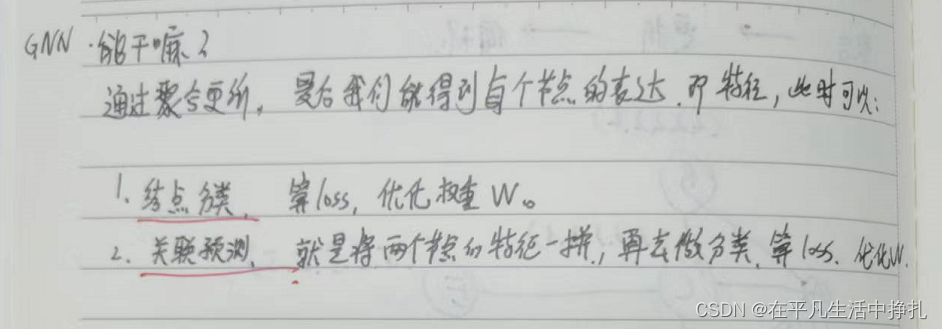 GNN 能干嘛？
通过聚合更新，最后我们能得到每个节点的表达，即特征，此时可以：
1. 结点分类，算loss，优化权重W。
2. 关联预测，就是将两个节点的特征一拼，再去做分类，算loss、优化W.
CSDN @在平凡生活中挣扎